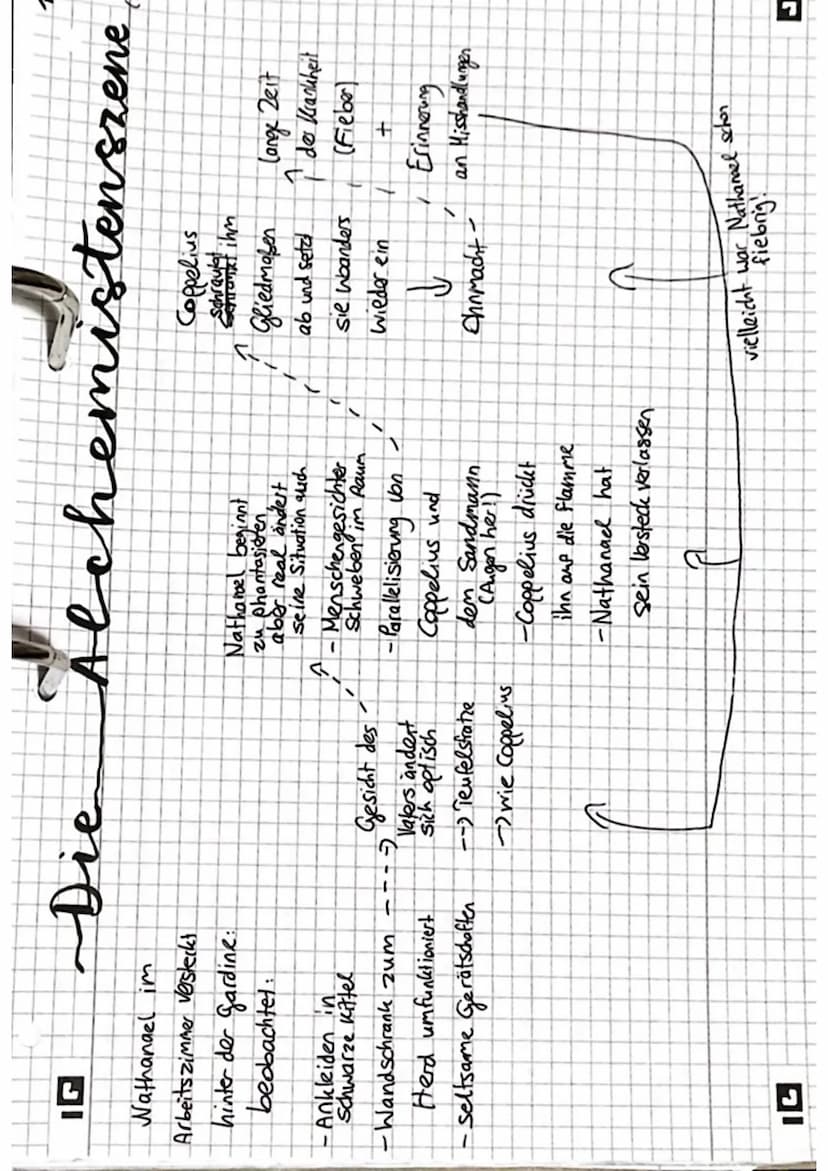 Die Alchemistenszene
Nathanael im
Arbeitszimmer versteckt
hinter der Gardine:
beobachtet:
- Ankleiden in
schwarze Kittel
- Wandschrank zum
Herd umfunktioniert
- seltsame Gerätschaften
Gesicht des
Vaters ändert
sich optisch
--> Teufelsfratze
-> wie Coppelius
Nathanael beginnt
zu phantasieren
aber real ändert
seine Situation auch
- Menschengesichter
schweben im Raum
- Parallelisierung von
Coppelius und
dem Sandmann
(Augen her!)
- Coppelius drückt
ihn auf die Flamme
- Nathanael hat
sein Versteck verlassen
Coppelius
schraubt ihm
Gliedmaßen
ab und setzt
sie woanders
wieder ein
↓
Ohnmacht
lange Zeit
der Krankheit
(Fieber)
+
Erinnerung
an Misshandlungen
vielleicht war Nathanael schon
fiebrig!